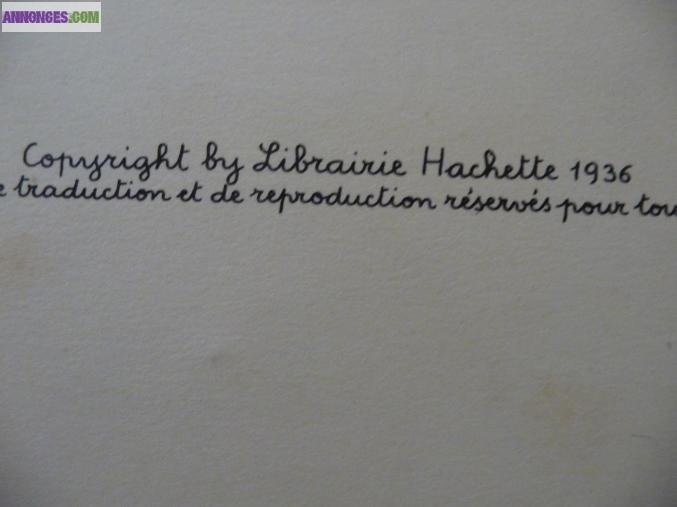 ANNONCES.COM
Copyright by Librairie Hachette 1936
traduction et de reproduction réservés pour